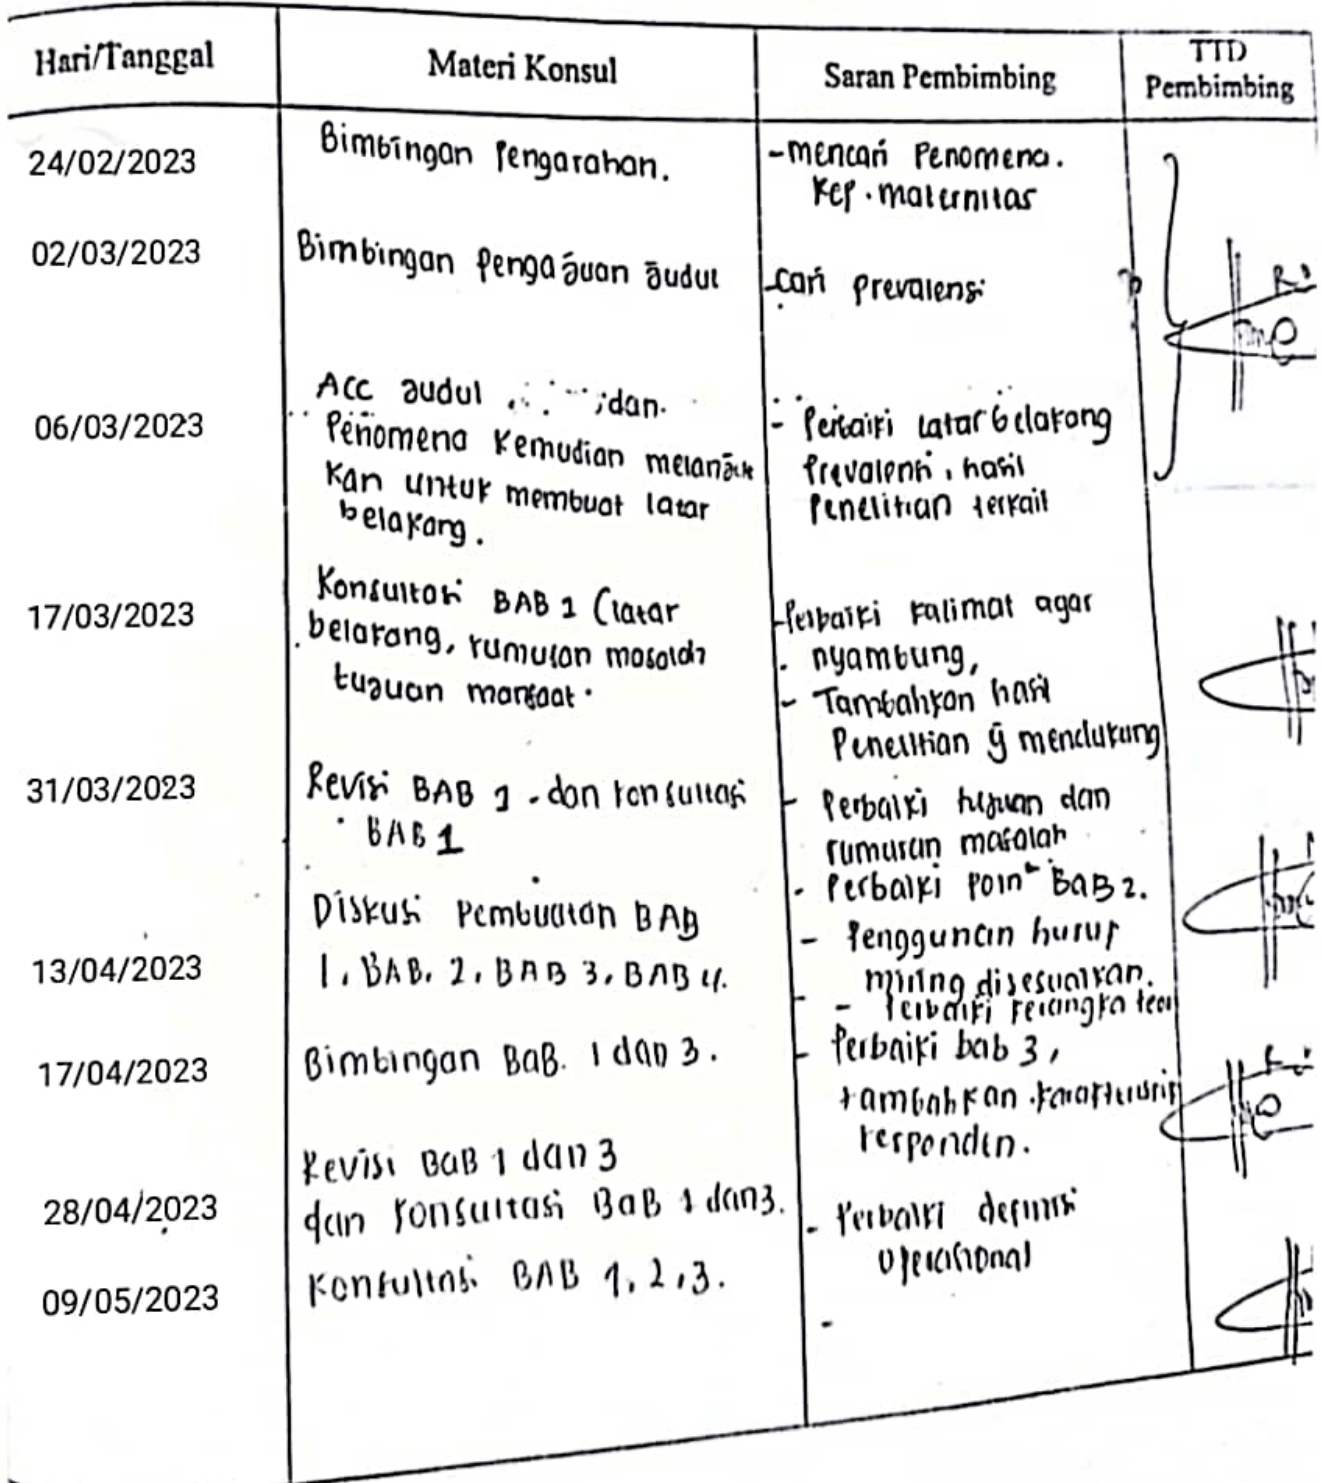 Hari/Tanggal
Materi Konsul
Saran Pembimbing
TTD
Pembimbing
24/02/2023
Bimbingan Pengarahan.
- mencari Penomena.
Kep. maternitas
02/03/2023
Bimbingan Pengajuan Judul
- cari Prevalensi
06/03/2023
Acc Judul dan
Penomena Kemudian melanjut
kan untuk membuat latar
belakang.
- Perbaiki latar belakang
Prevalensi, hasil
Penelitian terkait
17/03/2023
Konsultasi BAB 1 (latar
belakang, rumusan masalah
tujuan manfaat.
- Perbaiki kalimat agar
nyambung,
- Tambahkan hasil
Penelitian yg mendukung
31/03/2023
Revisi BAB 1 - dan konsultasi
BAB 1
- Perbaiki tujuan dan
rumusan masalah
- Perbaiki Point BAB 2.
13/04/2023
Diskusi Pembuatan BAB
1, BAB. 2, BAB 3, BAB 4.
- Penggunaan huruf
miring disesuaikan.
- Perbaiki kerangka teori
17/04/2023
Bimbingan BaB. 1 dan 3.
- Perbaiki bab 3,
tambahkan
responden.
28/04/2023
Revisi BaB 1 dan 3
dan konsultasi BaB 1 dan 3.
- Perbaiki definisi
operasional
09/05/2023
Konsultasi BAB 1, 2, 3.
-